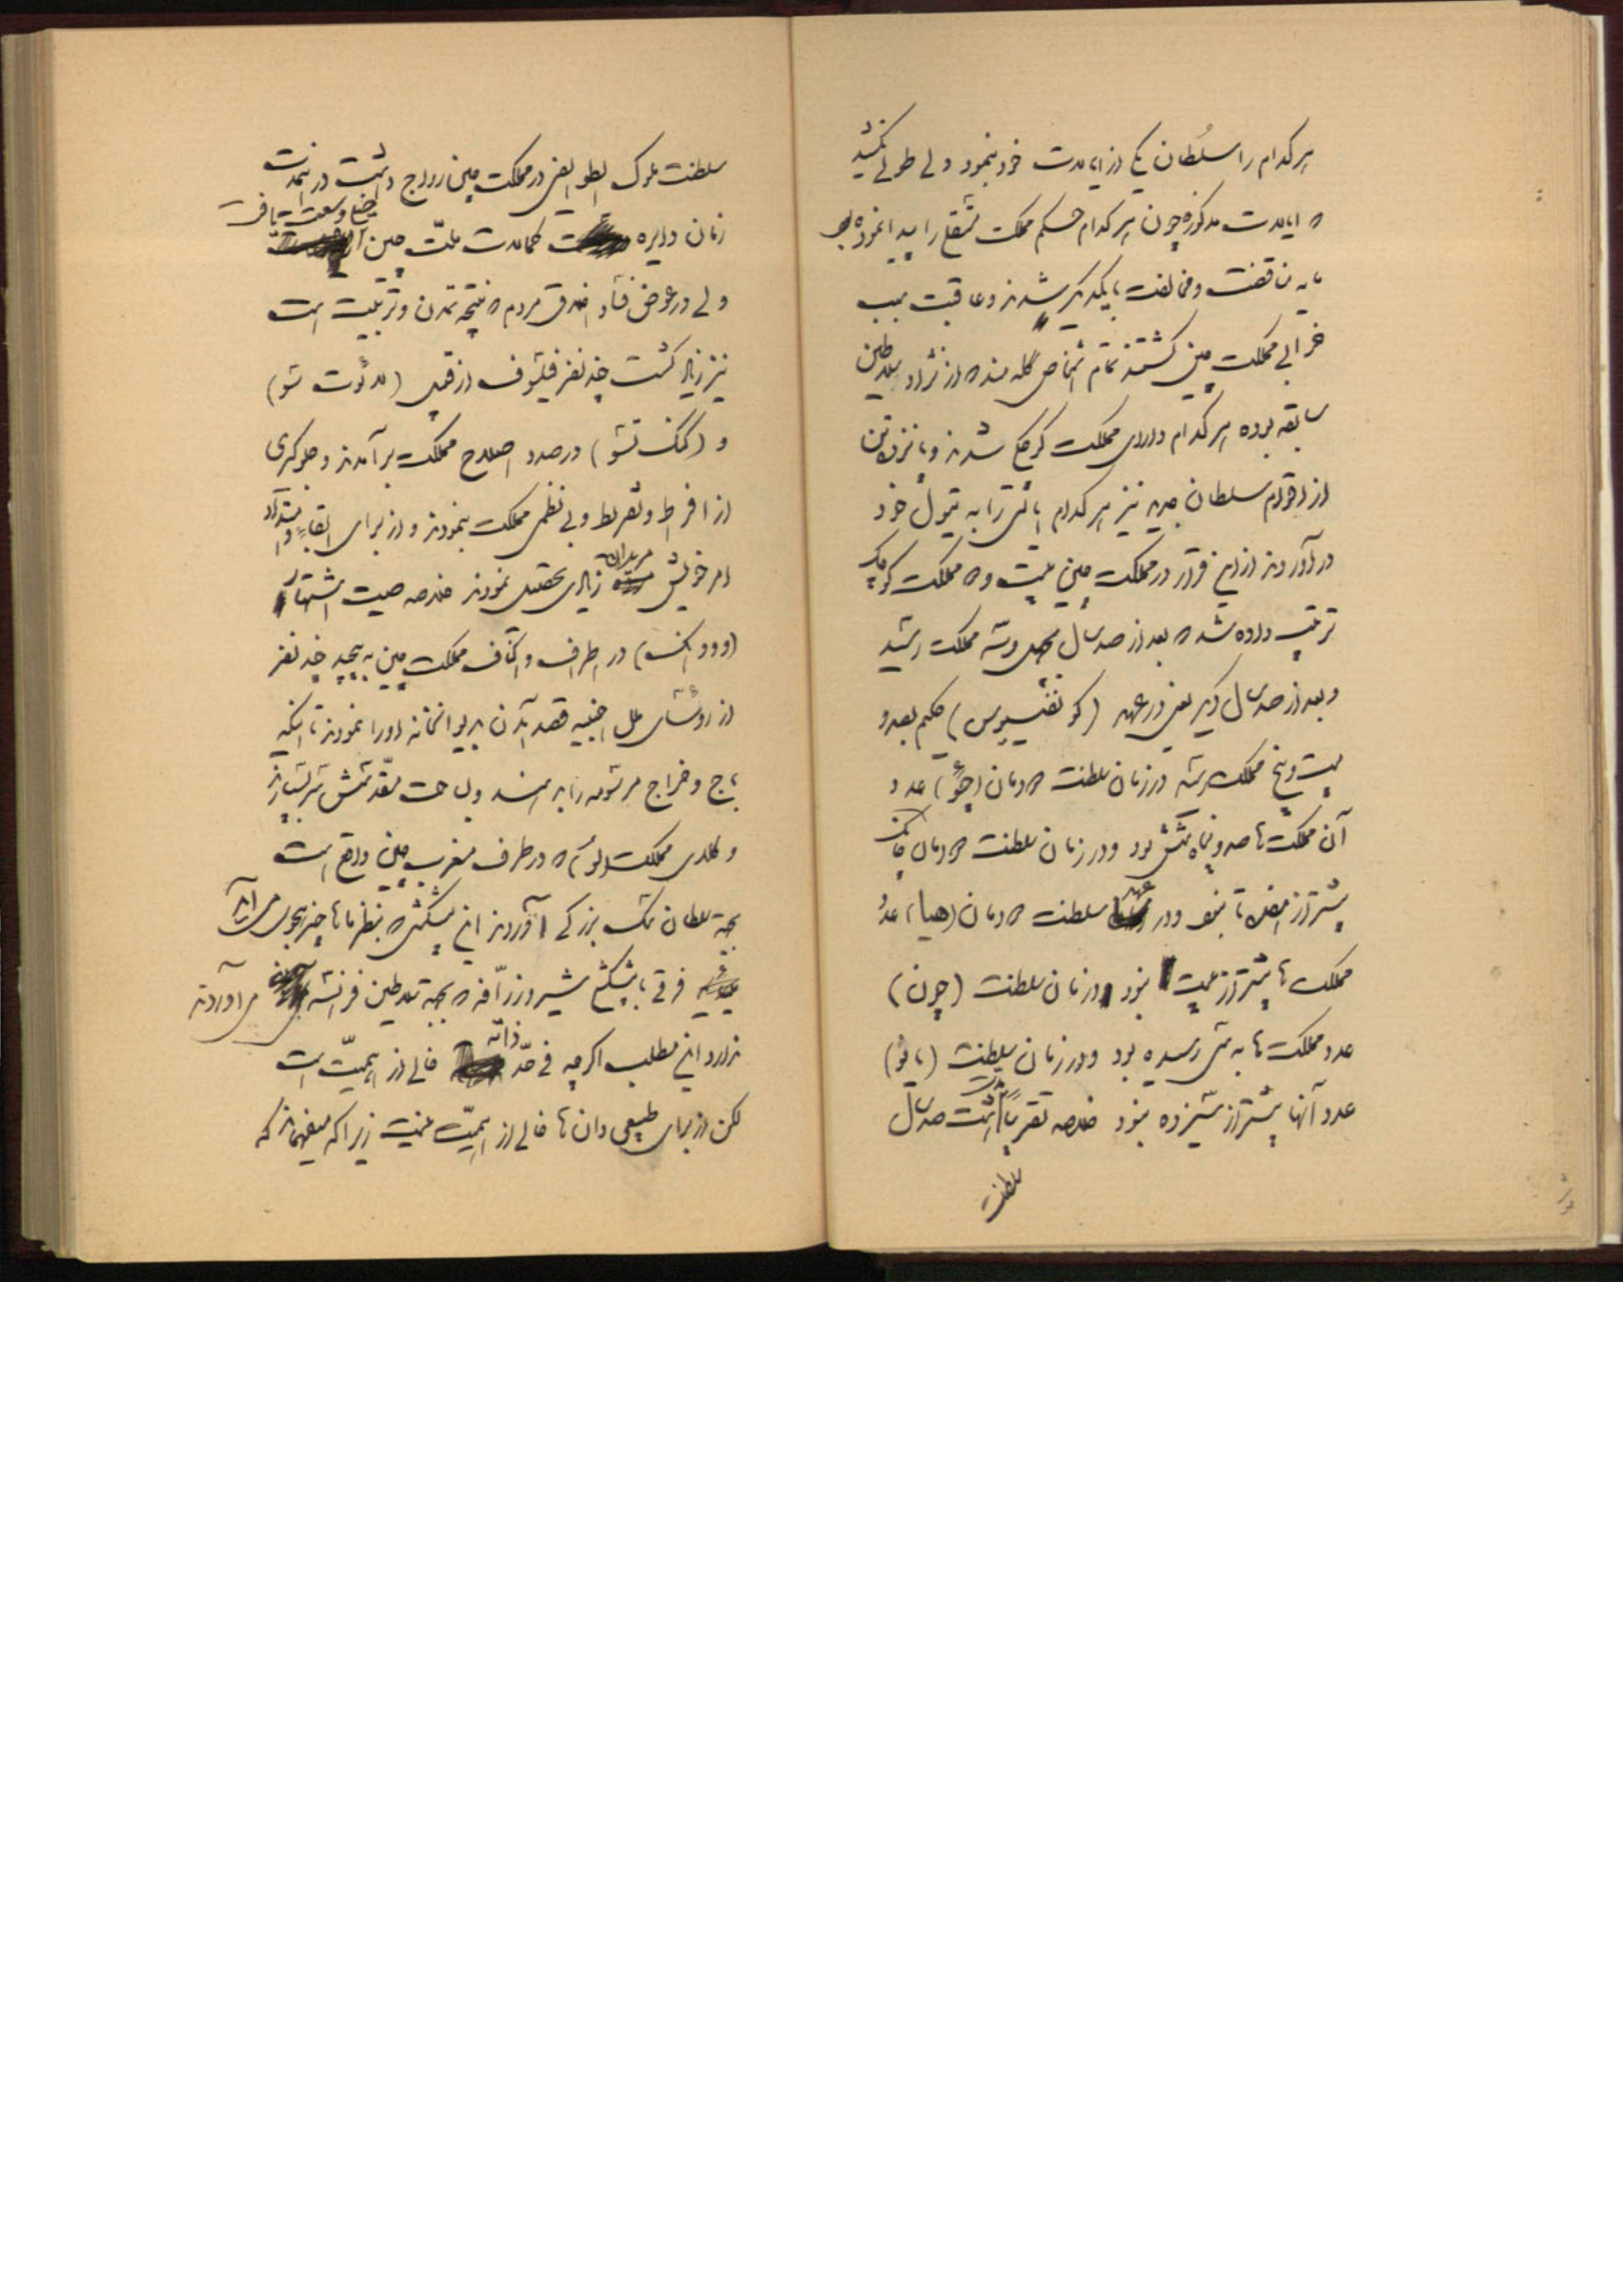 هر کدام را سلطان یکی از ایالات خود بنمود ولی طولی نکشید
که ایالات مذکوره چون هر کدام حکم مملکت مستقلی را پیدا نموده
مناقضت و مخالفت با یکدیگر شدند و عاقبت سبب
خرابی مملکت چین گشتند تمام اشخاص که از نژاد سلاطین
سابقه بوده هر کدام دارای مملکت کوچکی شدند و پانزده تن
از اقوام سلطان جدید نیز هر کدام ایالتی را به تیول خود
در آوردند از این قرار در مملکت چین بیست و مملکت کوچک
ترتیب داده شد که بعد از صد سال به چهل و سه مملکت رسید
و بعد از صد سال دیگر یعنی در عهد (کونفسیوس) حکیم بصد و
بیست و پنج مملکت رسید در زمان سلطنت دودمان (چو) عدد
آن مملکت ها صد و پنجاه و شش بود و در زمان سلطنت دودمان چانک
بیشتر از نبود و در عهد سلطنت دودمان (هیا) عدد
مملکت ها بیشتر از بیست نبود در زمان سلطنت (چون)
عدد مملکت ها به سی رسیده بود و در زمان سلطنت (یائو)
عدد آنها بیشتر از سیزده نبود خلاصه تقریباً مدت هشت صد سال
سلطنت
سلطنت ملوک الطوایفی در مملکت چین رواج داشت در این مدت
زمان دایره کمالات ملت چین وسعت یافت
ولی در عوض فساد اخلاق مردم که نتیجه تمدن و تربیت است
نیز زیاد گشت چند نفر فیلسوف از قبیل (لائوت سو)
و (کنگ تسو) در صدد اصلاح مملکت برآمدند و جلوگیری
از افراط و تفریط و بی نظمی مملکت بنمودند و از برای
امر خویش مریدان زیادی تحصیل نمودند خلاصه صیت اشتهار
(ووانک) در اطراف و اکناف مملکت چین به پیچید چند نفر
از رؤسای ملل اجنبیه قصد آمدن بدیوانخانه او را نمودند تا اینکه
باج و خراج مرسومه را بدهند
و اهالی مملکت (لو) که در طرف مغرب چین واقع است
بجهة سلطان سک بزرگی آوردند این پیشکش که بنظر ماها چیز عجیبی می آید
فرقی با پیشکش شیر و زرافه که بجهة سلاطین فرانسه می آوردند
ندارد این مطلب اگر چه فی حد ذاته خالی از اهمیت است
لکن از برای طبیعی دان ها خالی از اهمیت نیست زیرا که میفهماند که